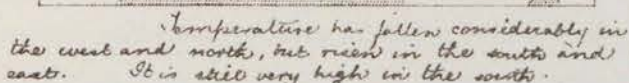 Temperature has fallen considerably in
the west and north, but risen in the south and
east. It is still very high in the south.